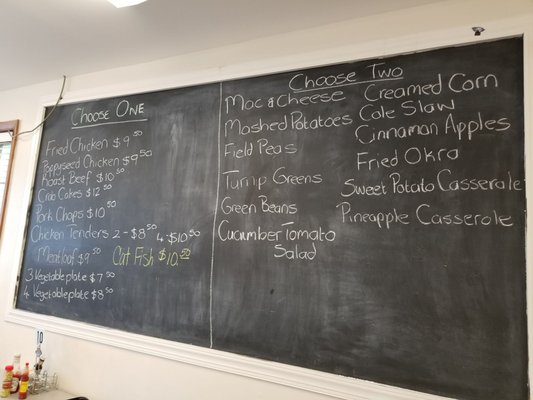 Choose One
Fried Chicken $9.50
Poppyseed Chicken $9.50
Roast Beef $10.50
Crab Cakes $12.50
Pork Chops $10.50
Chicken Tenders 2 - $8.50 4 - $10.50
Meatloaf $9.50 Cat Fish $10.50
3 Vegetable plate $7.50
4 Vegetable plate $8.50
Choose Two
Mac & Cheese
Mashed Potatoes
Field Peas
Turnip Greens
Green Beans
Cucumber Tomato
Salad
Creamed Corn
Cole Slaw
Cinnaman Apples
Fried Okra
Sweet Potato Casserole
Pineapple Casserole
10